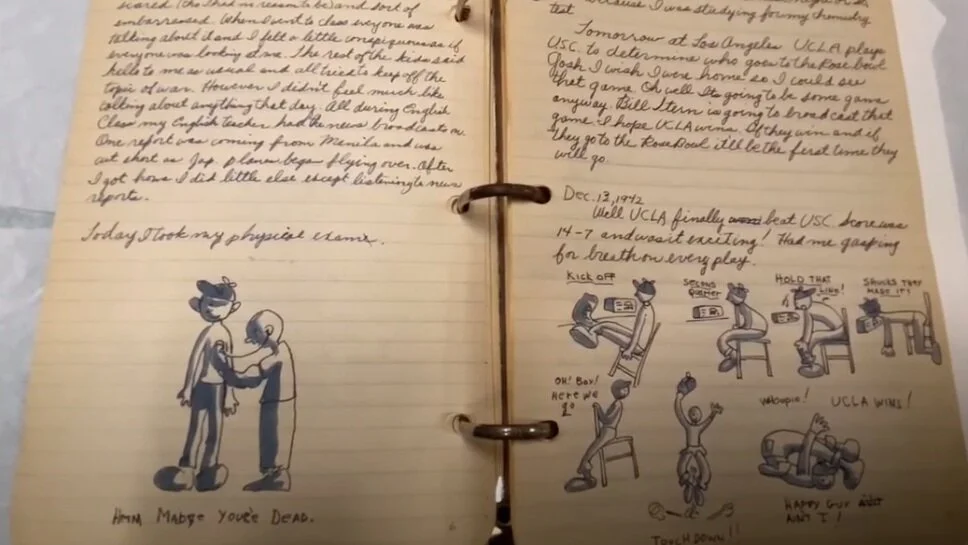 scared (tho I had no reason to be) and sort of
embarressed. When I went to class everyone was
talking about it and I felt a little conspiquous as if
everyone was looking at me. The rest of the kids said
hello to me as usual and all tried to keep off the
topic of war. However I didn't feel much like
talking about anything that day. All during English
Class my English teacher had the news broadcasts on.
One report was coming from Manila and was
cut short as Jap. planes began flying over. After
I got home I did little else except listening to news
reports.
Today I took my physical exame.
Hmm Madge You're Dead.
6
because I was studying for my chemistry
test.
Tomorrow at Los Angeles UCLA plays
USC. to determine who goes to the Rose bowl
Gosh I wish I were home so I could see
that game. Oh well Its going to be some game
anyway. Bill Stern is going to broadcast that
game. I hope UCLA wins. If they win and if
they go to the Rose Bowl it'll be the first time they
will go.
Dec. 13, 1942
Well UCLA finally beat USC. Score was
14-7 and was it exciting! Had me gasping
for breath on every play.
Kick off
SECOND QUARTER
HOLD THAT LINE!
SHUCKS THEY MADE IT!
OH! BOY!
HERE WE
GO
TOUCHDOWN!!
Whoopie! UCLA WINS!
HAPPY GUY
AIN'T I!